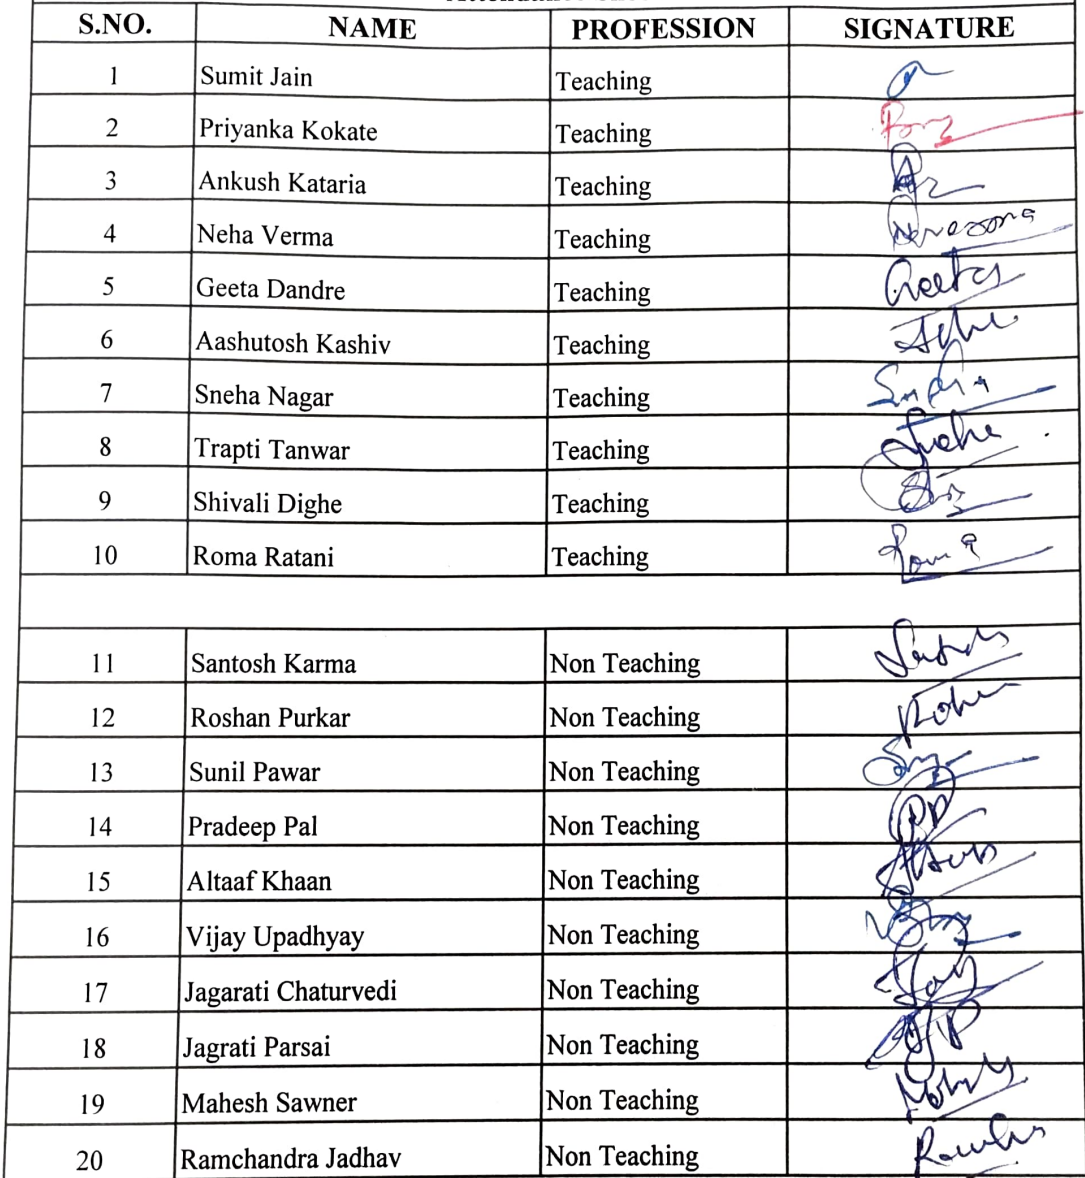 S.NO. NAME PROFESSION SIGNATURE
1 Sumit Jain Teaching
2 Priyanka Kokate Teaching
3 Ankush Kataria Teaching
4 Neha Verma Teaching
5 Geeta Dandre Teaching Geeta
6 Aashutosh Kashiv Teaching
7 Sneha Nagar Teaching
8 Trapti Tanwar Teaching
9 Shivali Dighe Teaching
10 Roma Ratani Teaching
11 Santosh Karma Non Teaching
12 Roshan Purkar Non Teaching
13 Sunil Pawar Non Teaching
14 Pradeep Pal Non Teaching
15 Altaaf Khaan Non Teaching
16 Vijay Upadhyay Non Teaching
17 Jagarati Chaturvedi Non Teaching
18 Jagrati Parsai Non Teaching
19 Mahesh Sawner Non Teaching
20 Ramchandra Jadhav Non Teaching